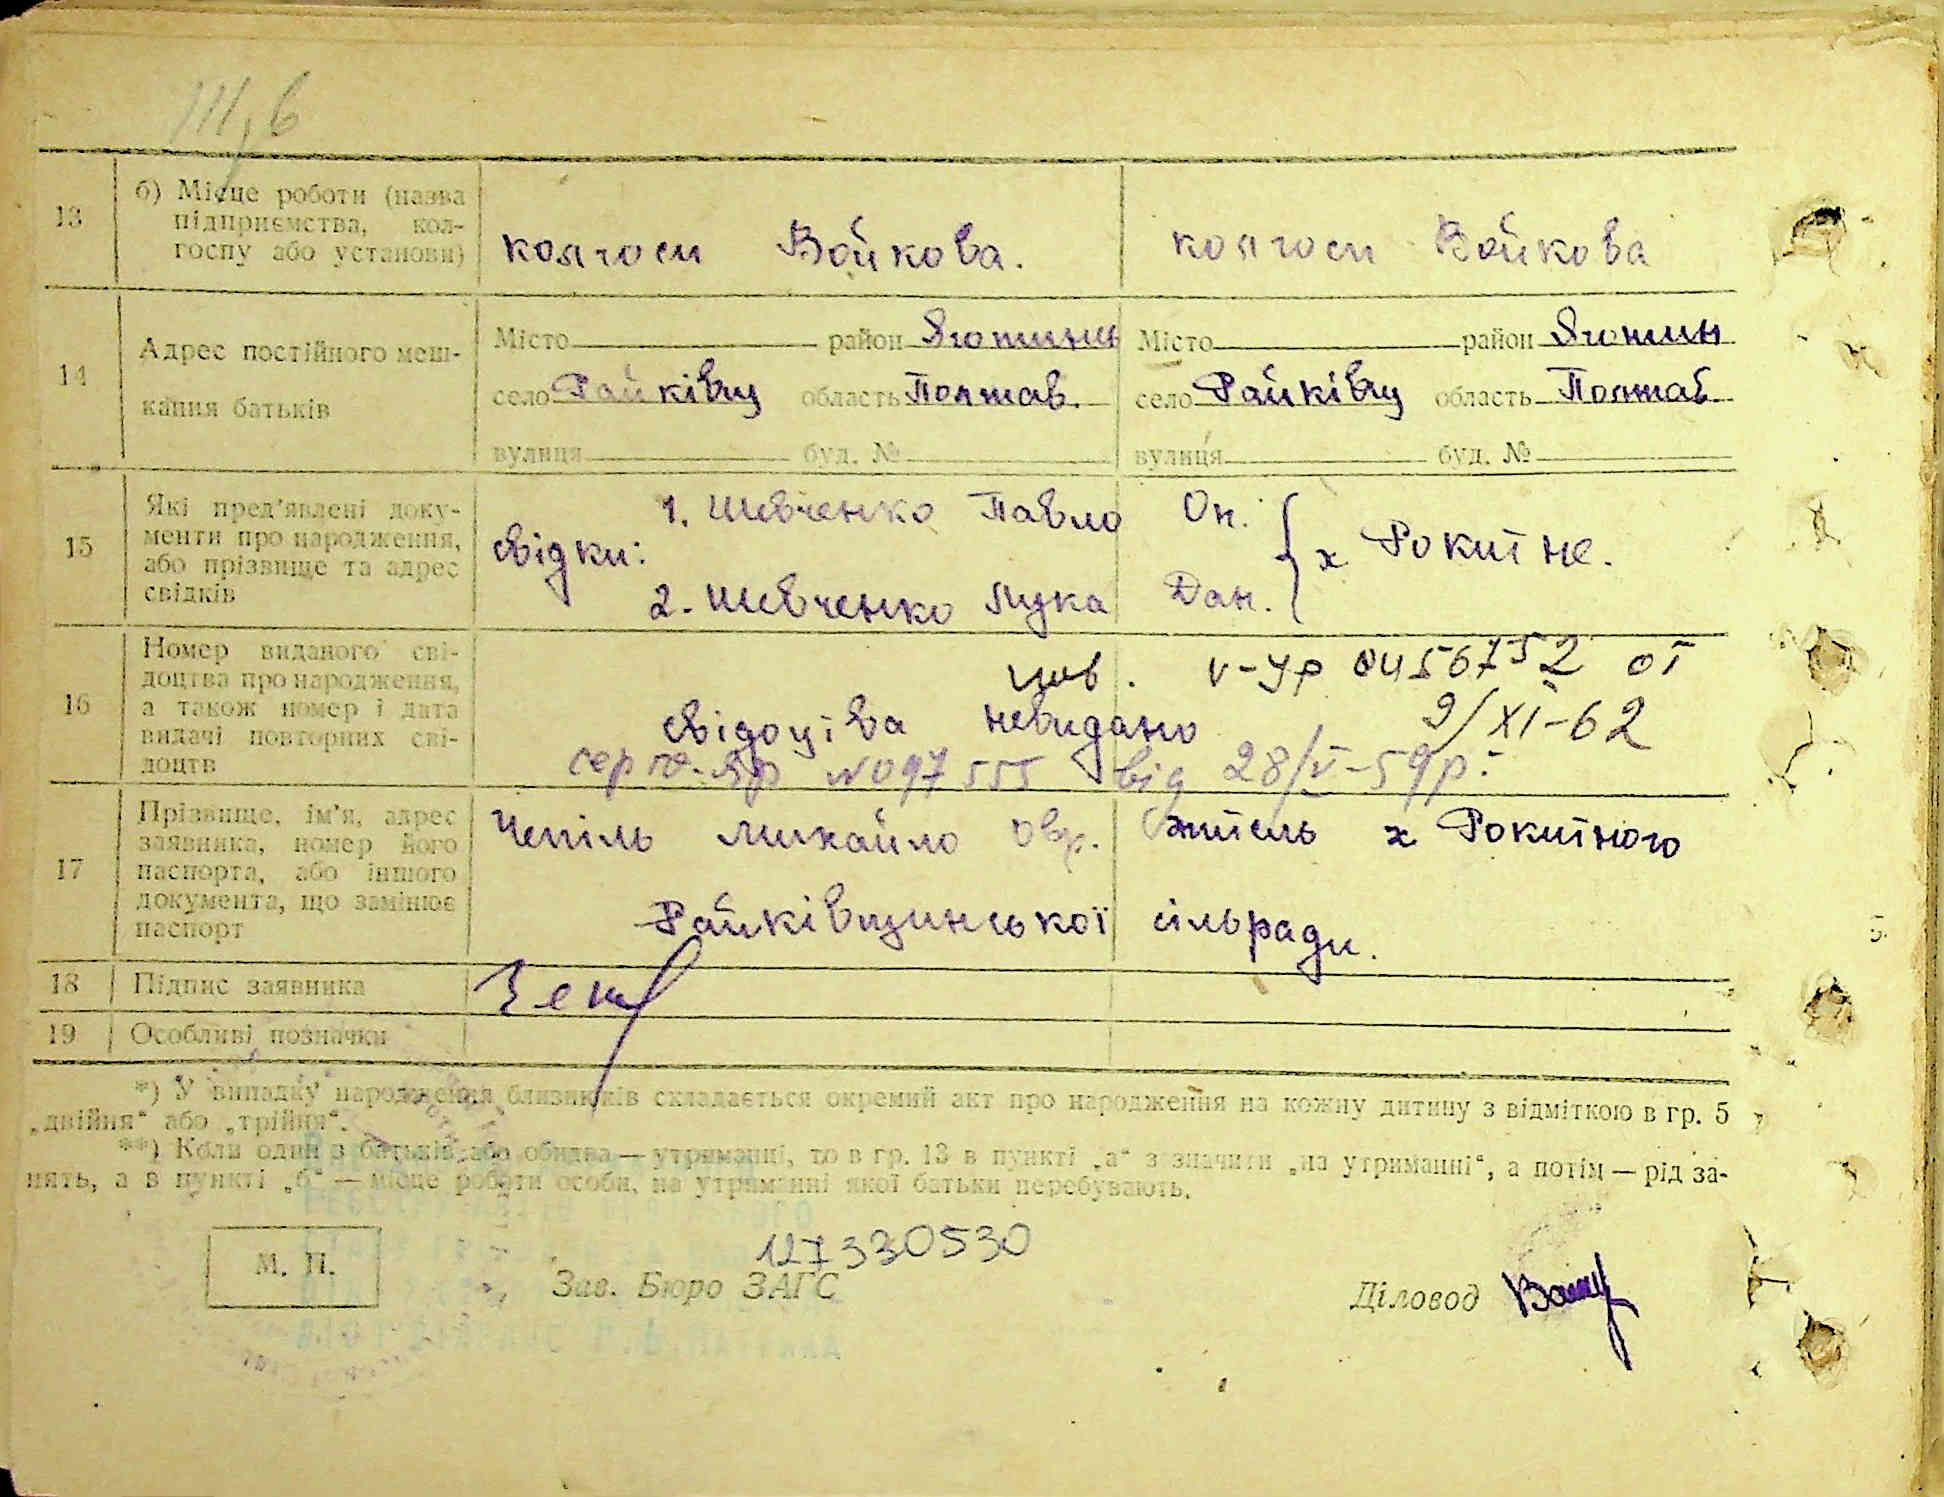 III, б
13 б) Місце роботи (назва
підприємства, кол-
госпу або установи)
колгосп Войкова. колгосп Войкова
14 Адрес постійного меш-
кання батьків
Місто район Яготинськ Місто район Яготин
село Райківщ область Полтав. село Райківщ область Полтав
вулиця буд. № вулиця буд. №
15 Які пред'явлені доку-
менти про народження,
або прізвище та адрес
свідків
свідки:
1. Шевченко Павло Он.
2. Шевченко Лука Дан.
х Рокитне.
16 Номер виданого сві-
доцтва про народження,
а також номер і дата
видачі повторних сві-
доцтв
V-УР 0456752 от
9/XI-62
свідоцтва невидано
N097555 від 28/V-59р.
17 Прізвище, ім'я, адрес
заявника, номер його
паспорта, або іншого
документа, що замінює
паспорт
Чепіль Михайло житель х Рокитного
Райківщинської сільради.
18 Підпис заявника
19 Особливі позначки
*) У випадку народження близнюків складається окремий акт про народження на кожну дитину з відміткою в гр. 5
„двійня“ або „трійня“.
**) Коли один з батьків або обидва — утриманці, то в гр. 13 в пункті „а“ зазначити „на утриманні“, а потім — рід за-
нять, а в пункті „б“ — місце роботи особи, на утриманні якої батьки перебувають.
127330530
М. П. Зав. Бюро ЗАГС Діловод